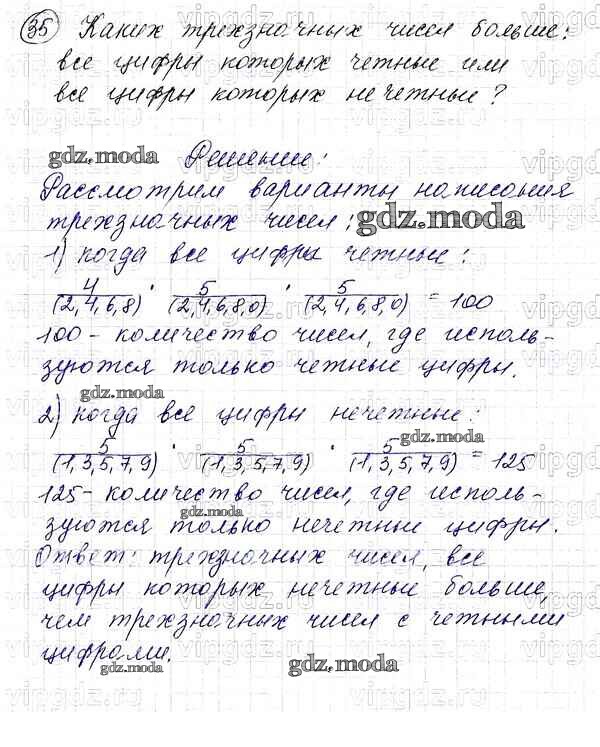 35 Каких трехзначных чисел больше:
все цифры которых четные или
все цифры которых нечетные?
gdz.moda Решение:
Рассмотрим варианты написания
трехзначных чисел: gdz.moda
1) когда все цифры четные:
4 · 5 · 5
(2,4,6,8) (2,4,6,8,0) (2,4,6,8,0) = 100
100 - количество чисел, где исполь-
зуются только четные цифры.
gdz.moda
2) когда все цифры нечетные:
gdz.moda
5 · 5 · 5
(1,3,5,7,9) (1,3,5,7,9) (1,3,5,7,9) = 125
125 - количество чисел, где исполь-
gdz.moda
зуются только нечетные цифры.
Ответ: трехзначных чисел, все
цифры которых нечетные больше,
чем трехзначных чисел с четными
цифрами.
gdz.moda gdz.moda
vipgdz.ru